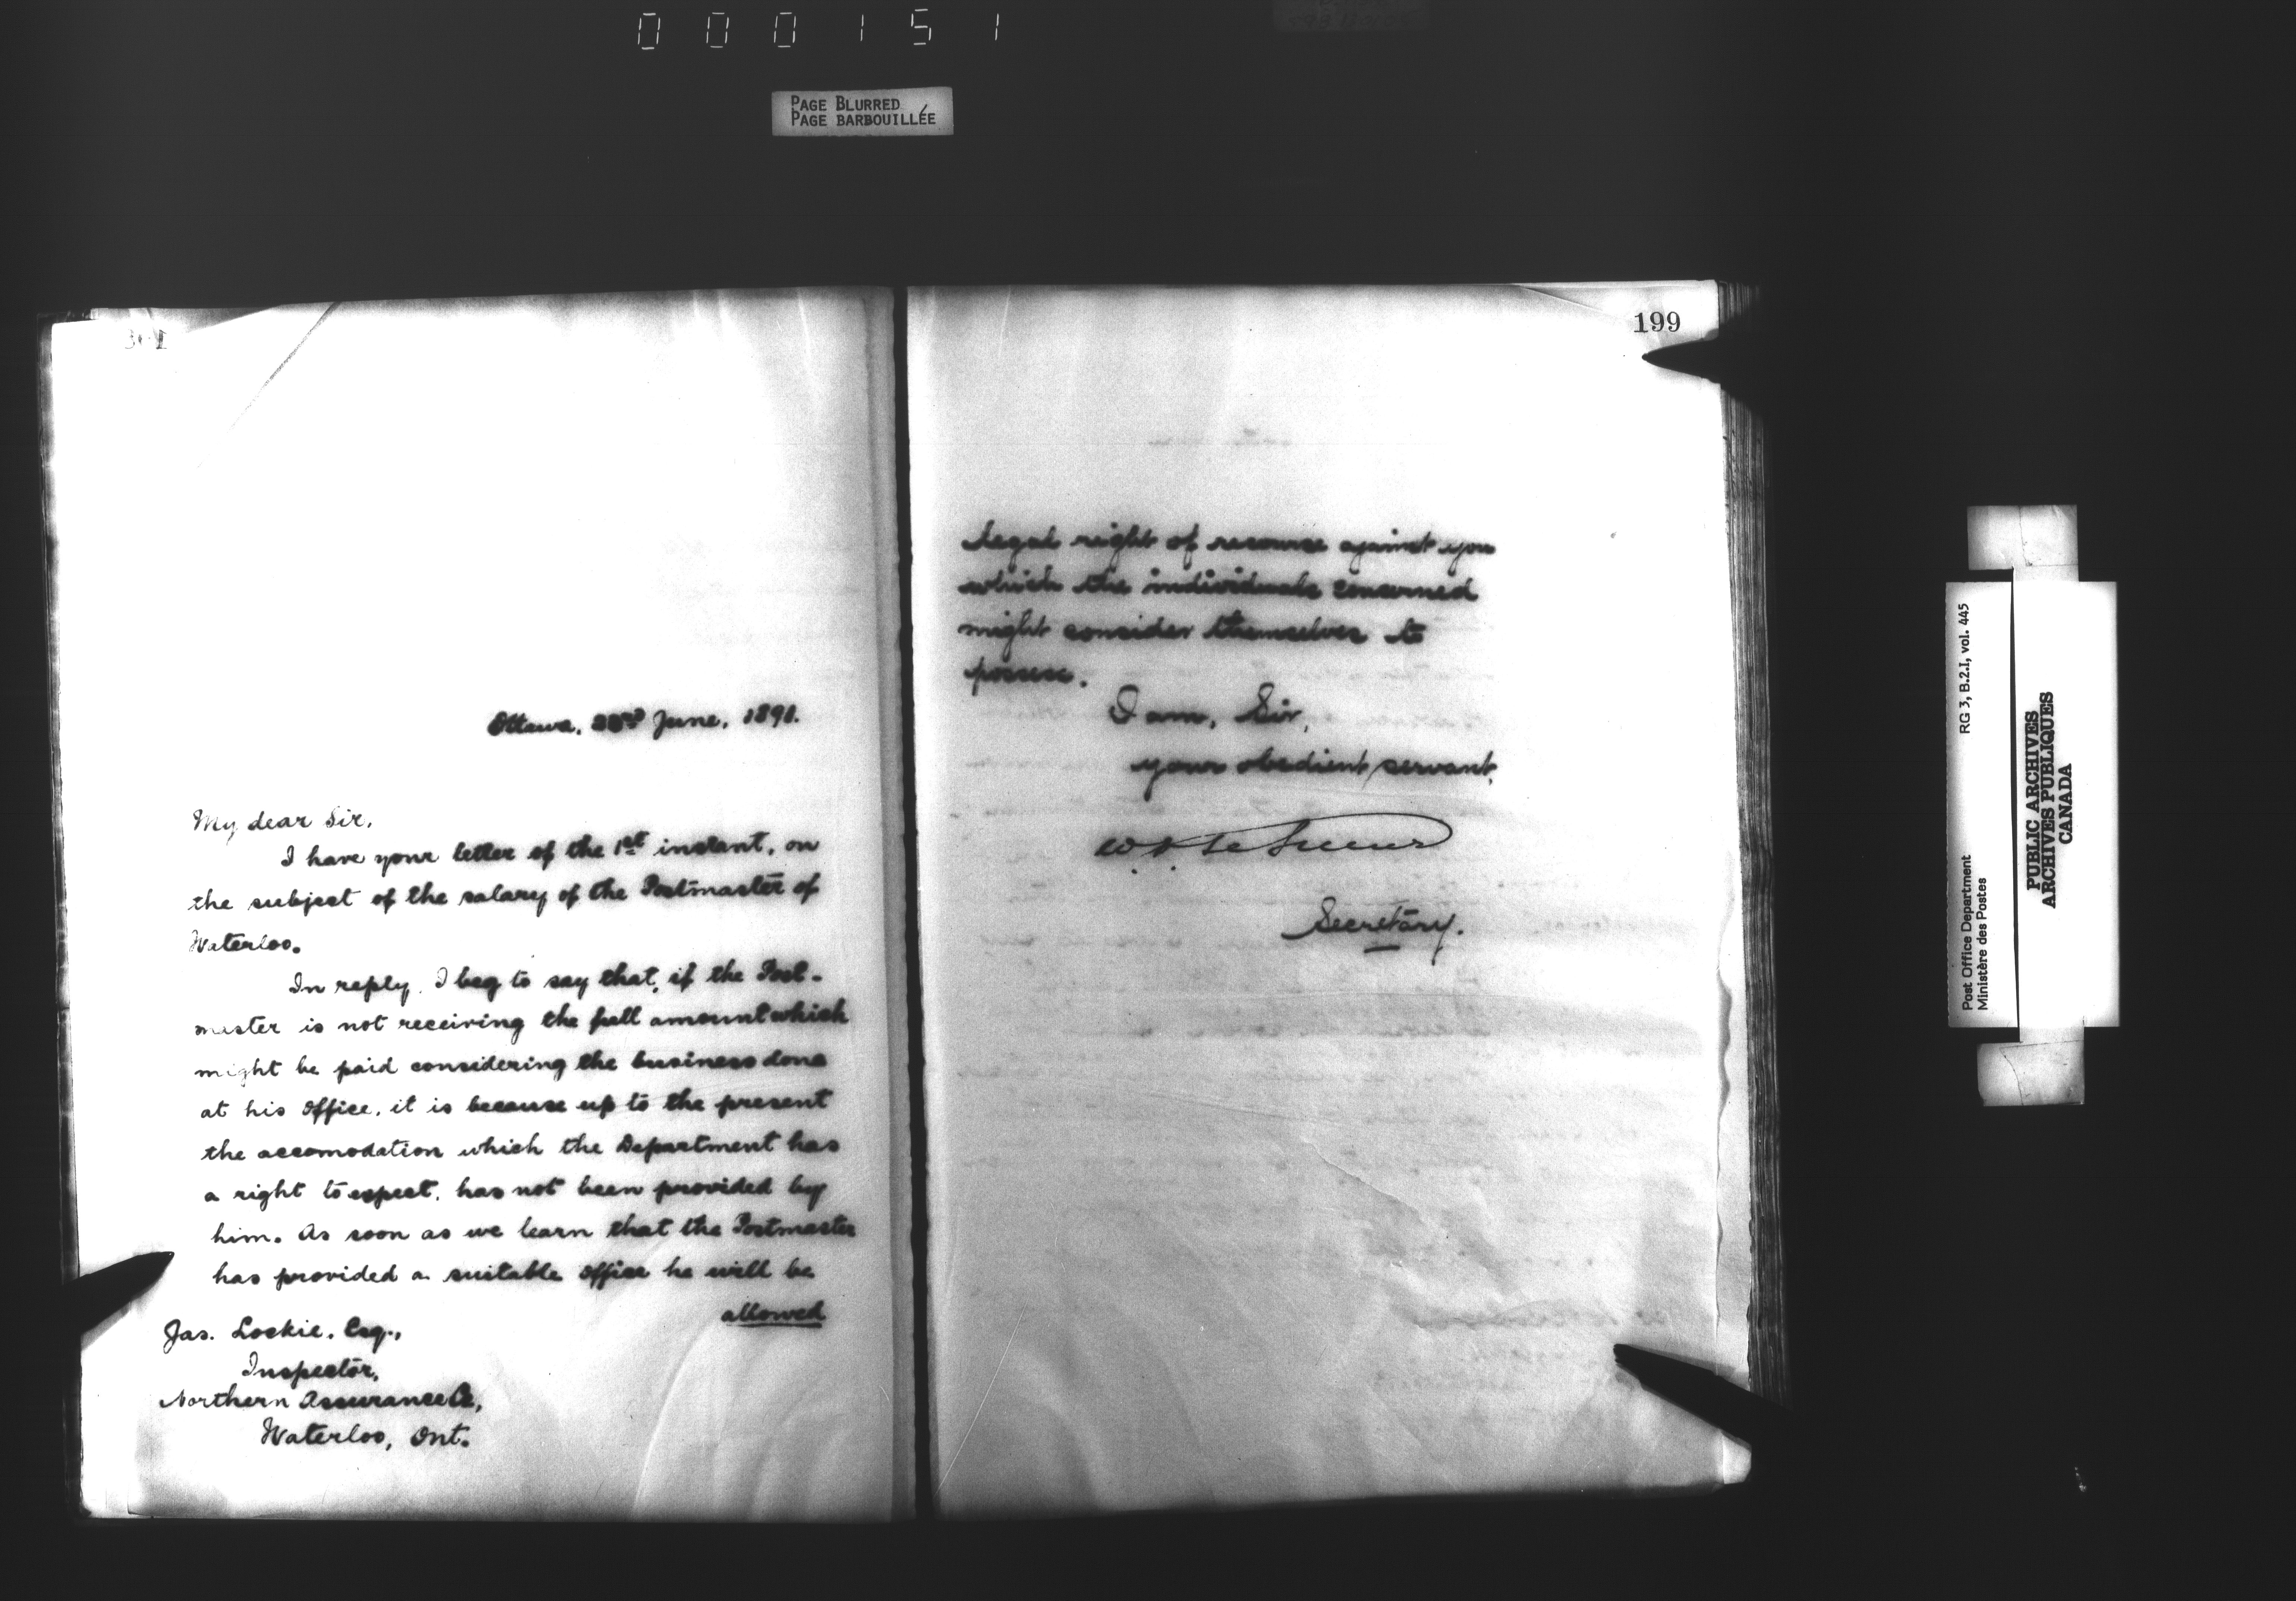 000151
PAGE BLURRED
PAGE BARBOUILLÉE
Ottawa, June, 1891.
My dear Sir,
I have your letter of the 1st instant, on
the subject of the salary of the Postmaster of
Waterloo.
In reply, I beg to say that, if the Post-
master is not receiving the full amount which
might be paid considering the business done
at his office, it is because up to the present
the accomodation which the Department has
a right to expect, has not been provided by
him. As soon as we learn that the Postmaster
has provided a suitable office he will be
allowed
Jas. Lockie, Esq.,
Inspector,
Northern Assurance Co,
Waterloo, Ont.
199
legal right of recourse against you
which the individuals concerned
might consider themselves to
possess.
I am, Sir,
your obedient servant,
W. D. LeSueur
Secretary.
Post Office Department
Ministère des Postes
RG 3, B.2.I, vol. 445
PUBLIC ARCHIVES
ARCHIVES PUBLIQUES
CANADA